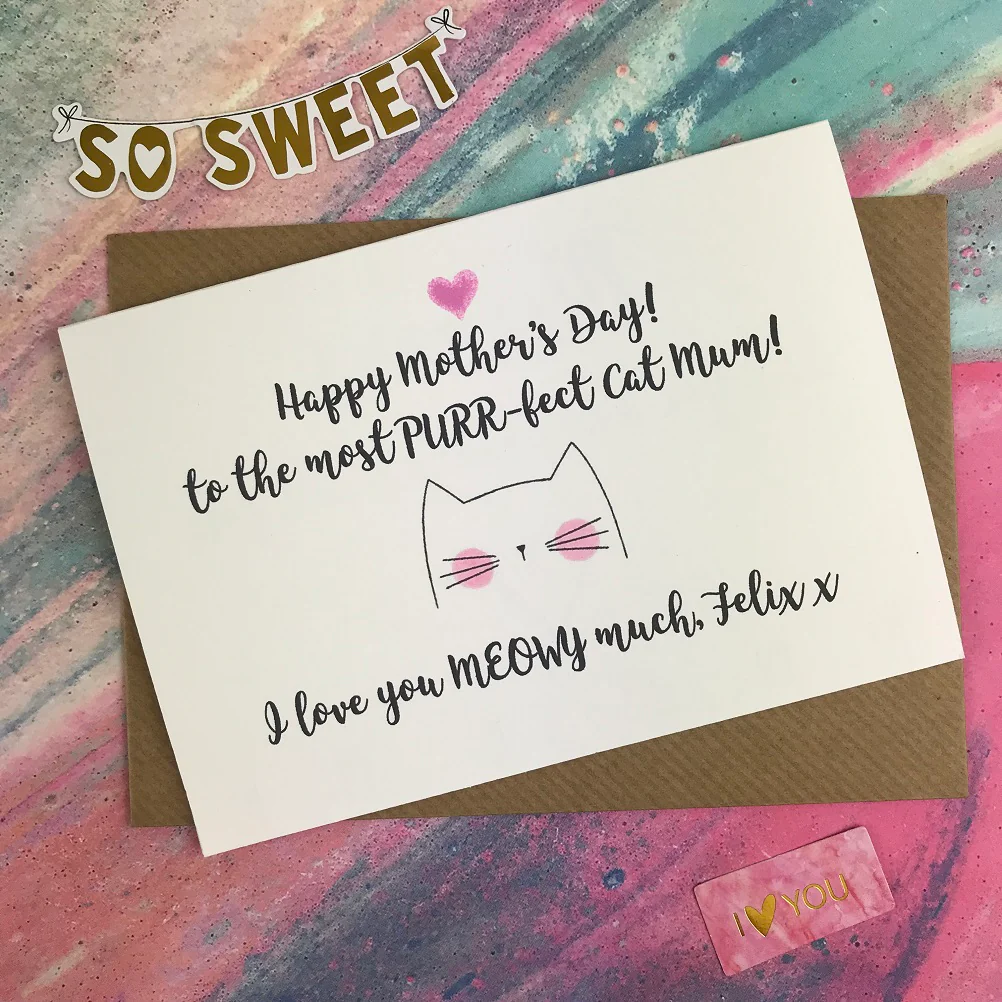 SO SWEET
Happy Mother's Day!
to the most PURR-fect Cat Mum!
I love you MEOWY much, Felix x
I ♥ YOU